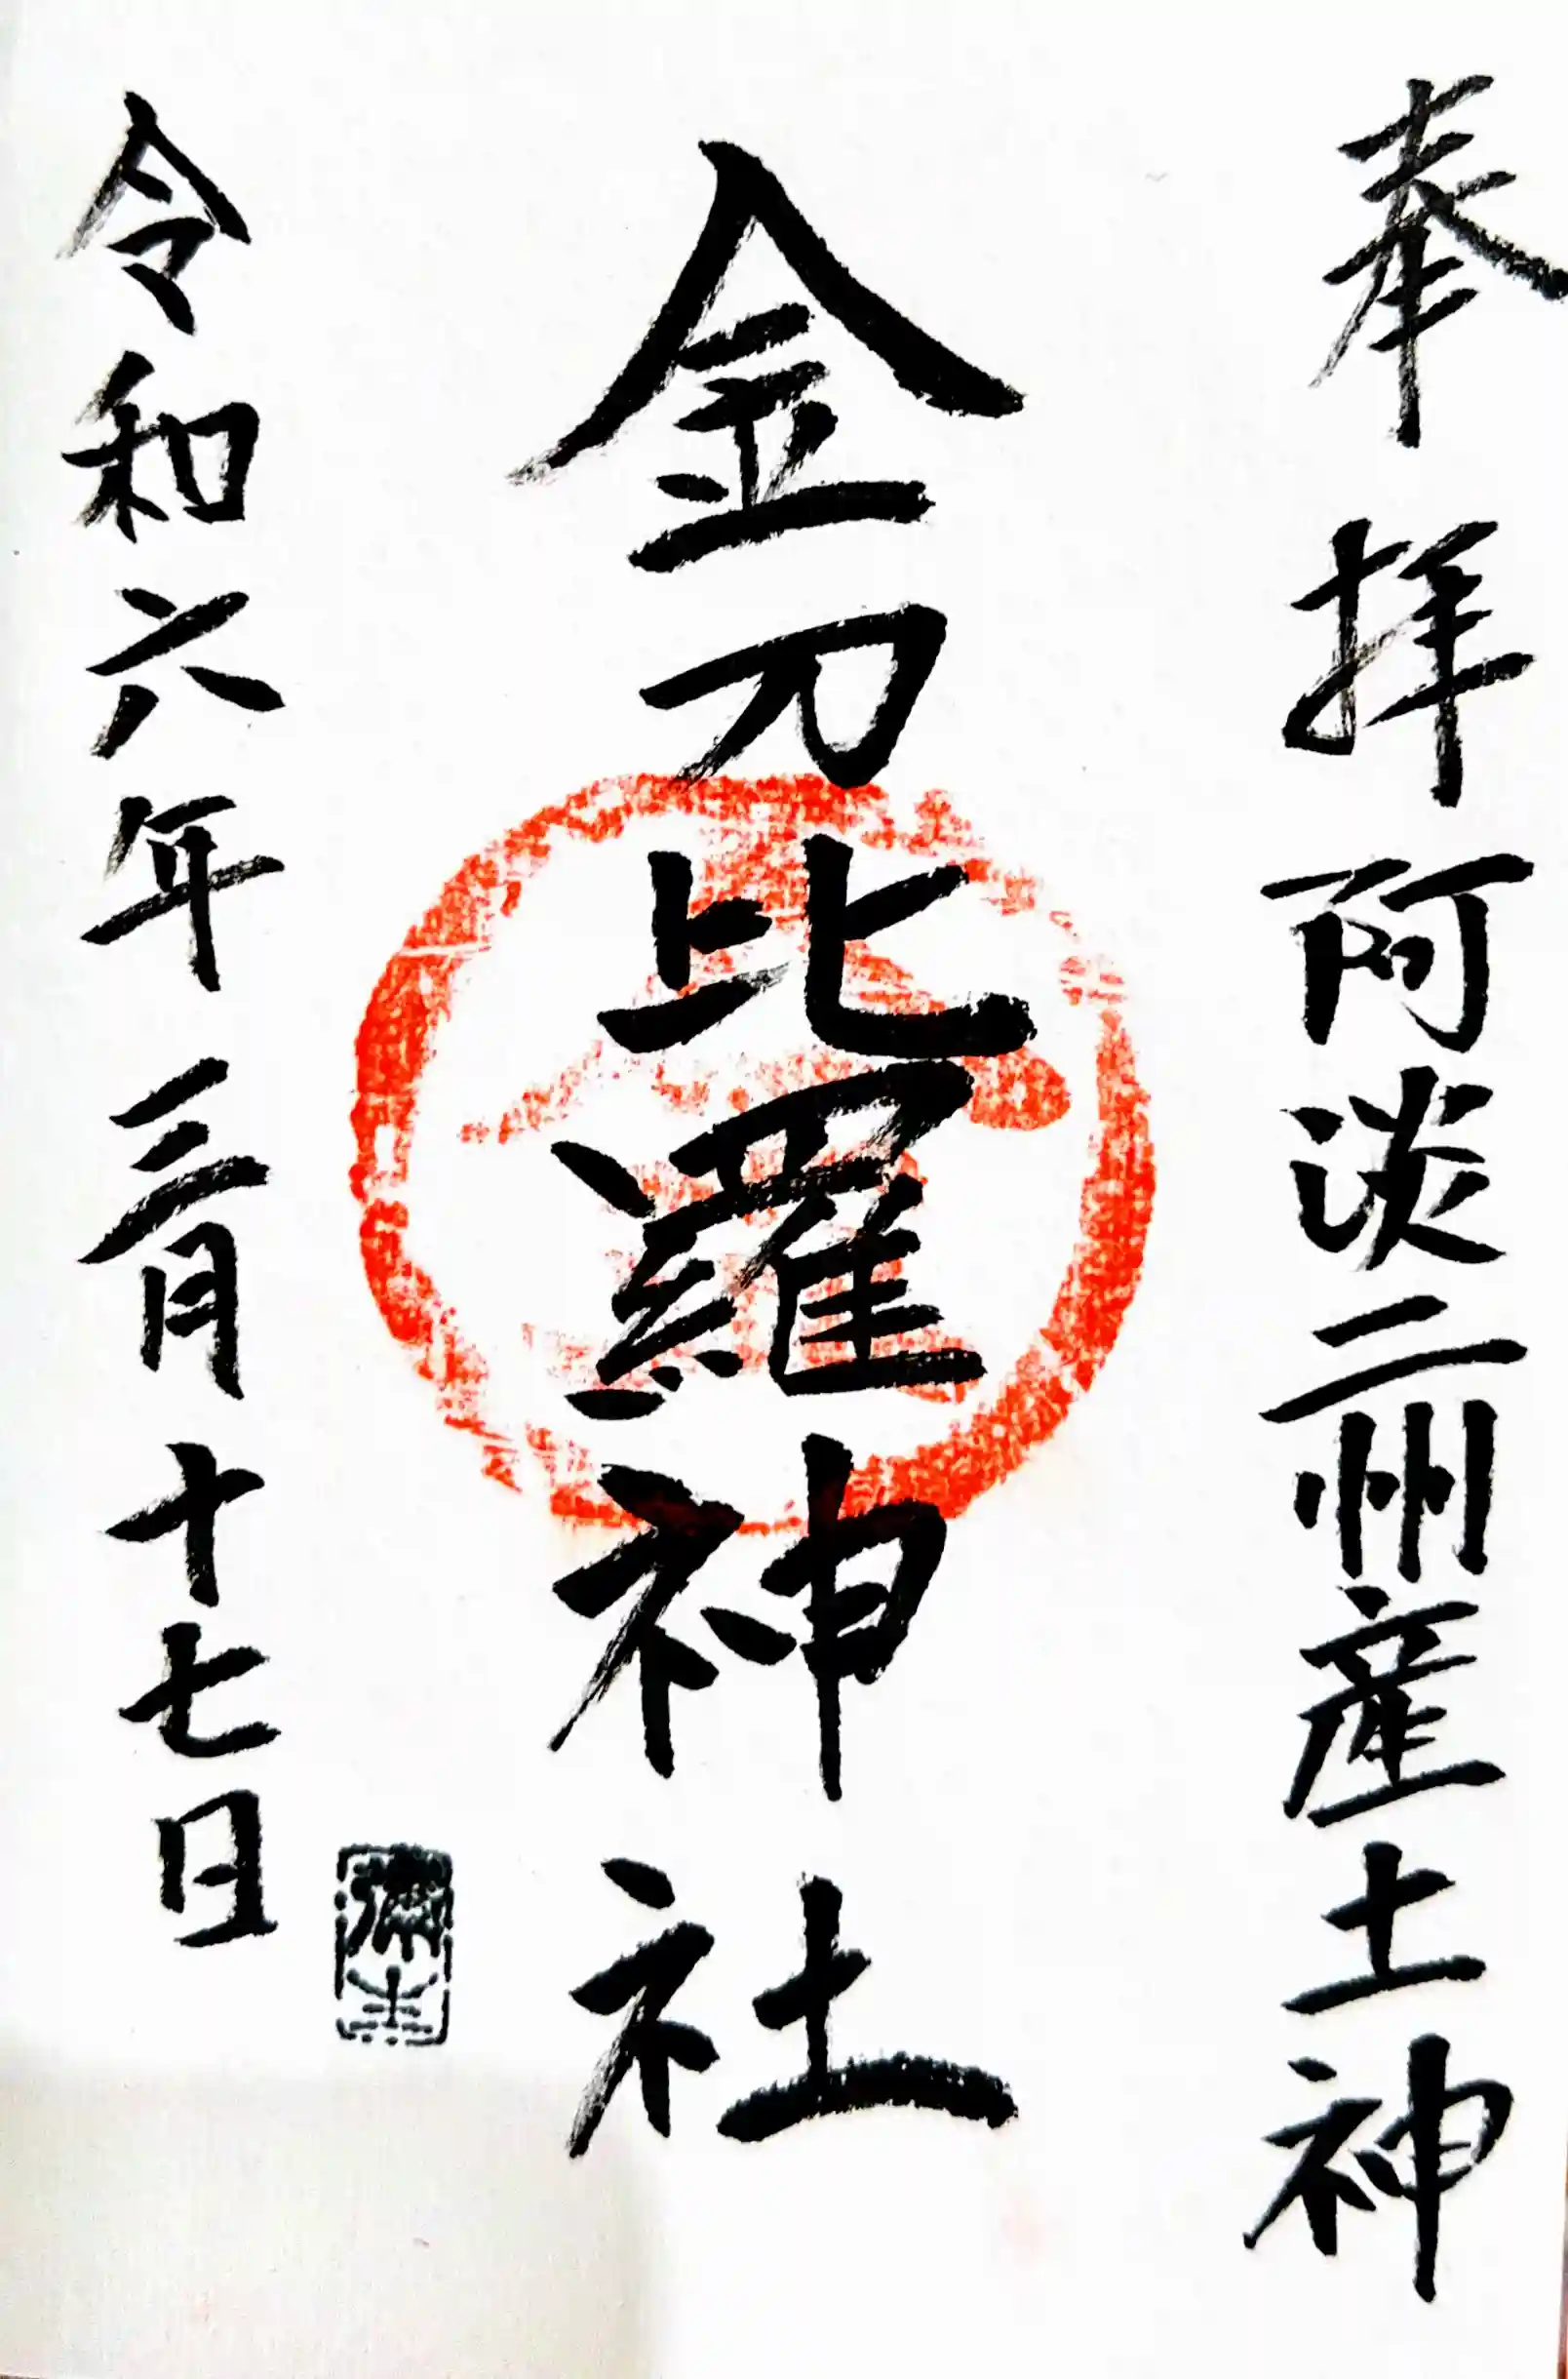 奉拝阿淡二州産土神
金刀比羅神社
令和六年三月十七日